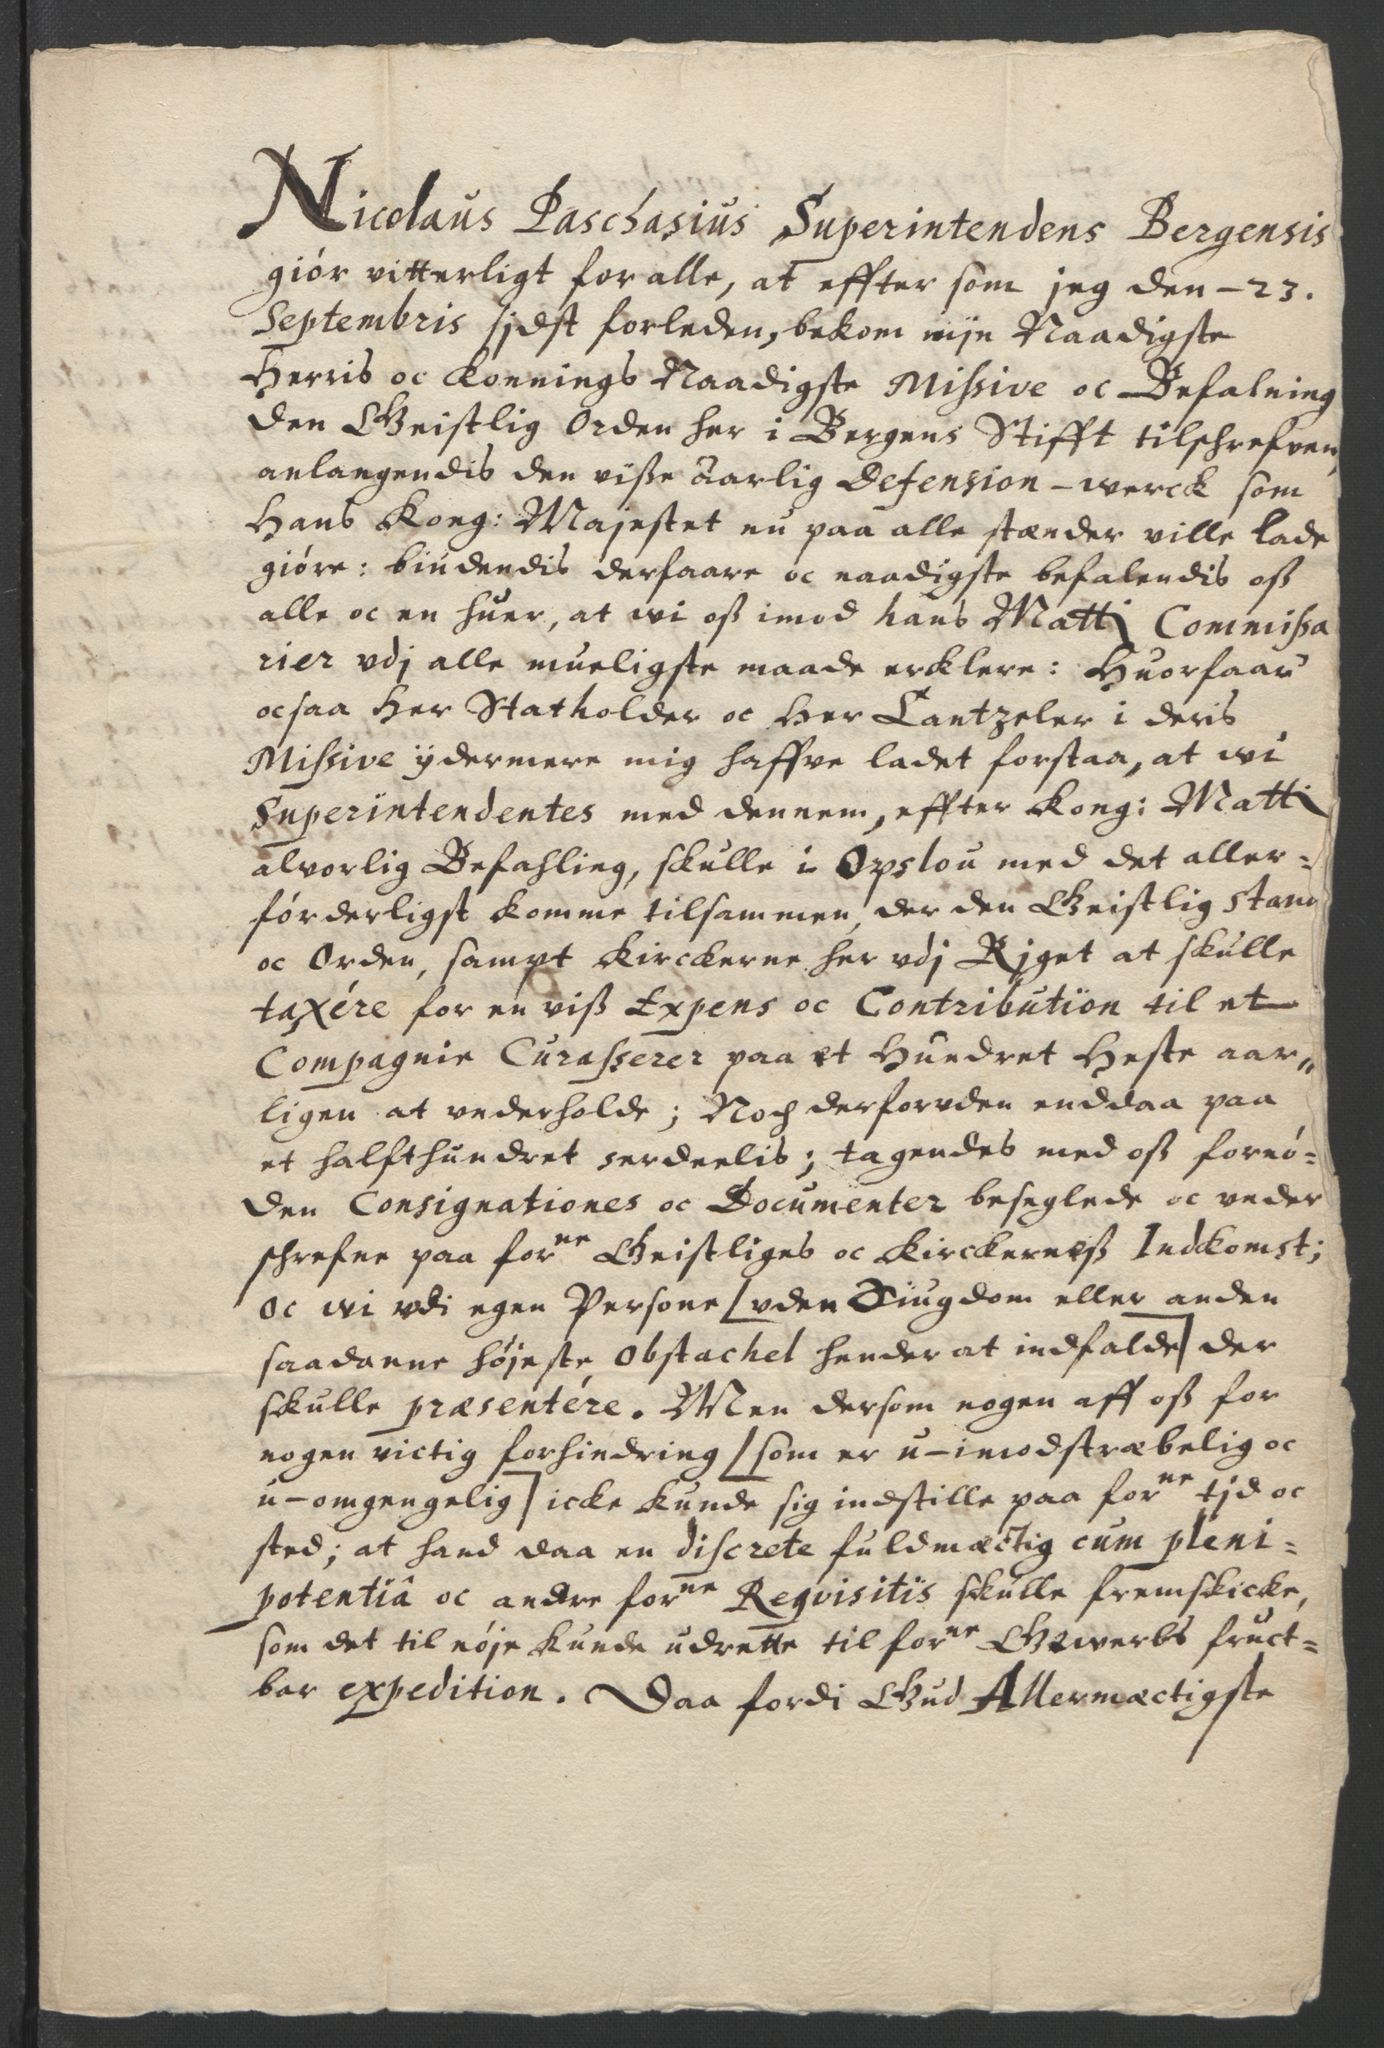 Nicolaus Paschasius Superintendens Bergensis
giór vitterligt for alle, at effter som jeg den – 23.
Septembris sjdst forleden, bekom mijn Naadigste
Herris oc Konnings Naadigste Missive oc Befalning
den Geistlig Orden her i Bergens Stifft tilschrefven,
anlangendis den visse aarlig Defension – werck som
Hans Kong: Majestet nu paa alle stænder ville lade
gióre: biudendis derfaare oc naadigste befalendis oss
alle oc en huer, at wi oss imod hans Matti Commissa
rier vdj alle mueligste maade erklere: Huorfaar
ocsaa Her Statholder oc Her Cantzeler i deris
Missive ÿdermere mig haffve ladet forstaa, at wi
Superintendentes med dennem, effter Kong: Matti
alvorlig Befahling, skulle i Opslou med det aller=
fórderligst komme tilsammen, der den Geistlig Stand
oc Orden, sampt Kirckerne her vdj Rjget at skulle
taxére for en viss Expens oc Contribution til et
Compagnie Curasserer paa et Hundret Heste aar„
ligen at vnderholde; Noch derforvden enddaa paa
et halfthundret serdeelis; tagendes med oss fornó=
den Consignationes oc Documenter beseglede oc vnder
schrefne paa forne Geistliges oc Kirckerness Indkomst;
oc wi vdi egen Persone [vden Siugdom eller anden
saadanne højeste Obstachel hender at indfalde] der
skulle præsentére. Men dersom nogen aff oss for
nogen victig forhindring [som er u–imodstræbelig oc
u–omgengelig] icke kunde sig indstille paa forne tjd oc
sted; at hand daa en discrete fuldmæctig cum pleni=
potentiâ oc andre forne Reqvisitiis skulle fremskicke,
som det til nøje kunde udrette til forne Gewerbs fruct=
bar expedition. Daa fordi Gud Allermæctigste